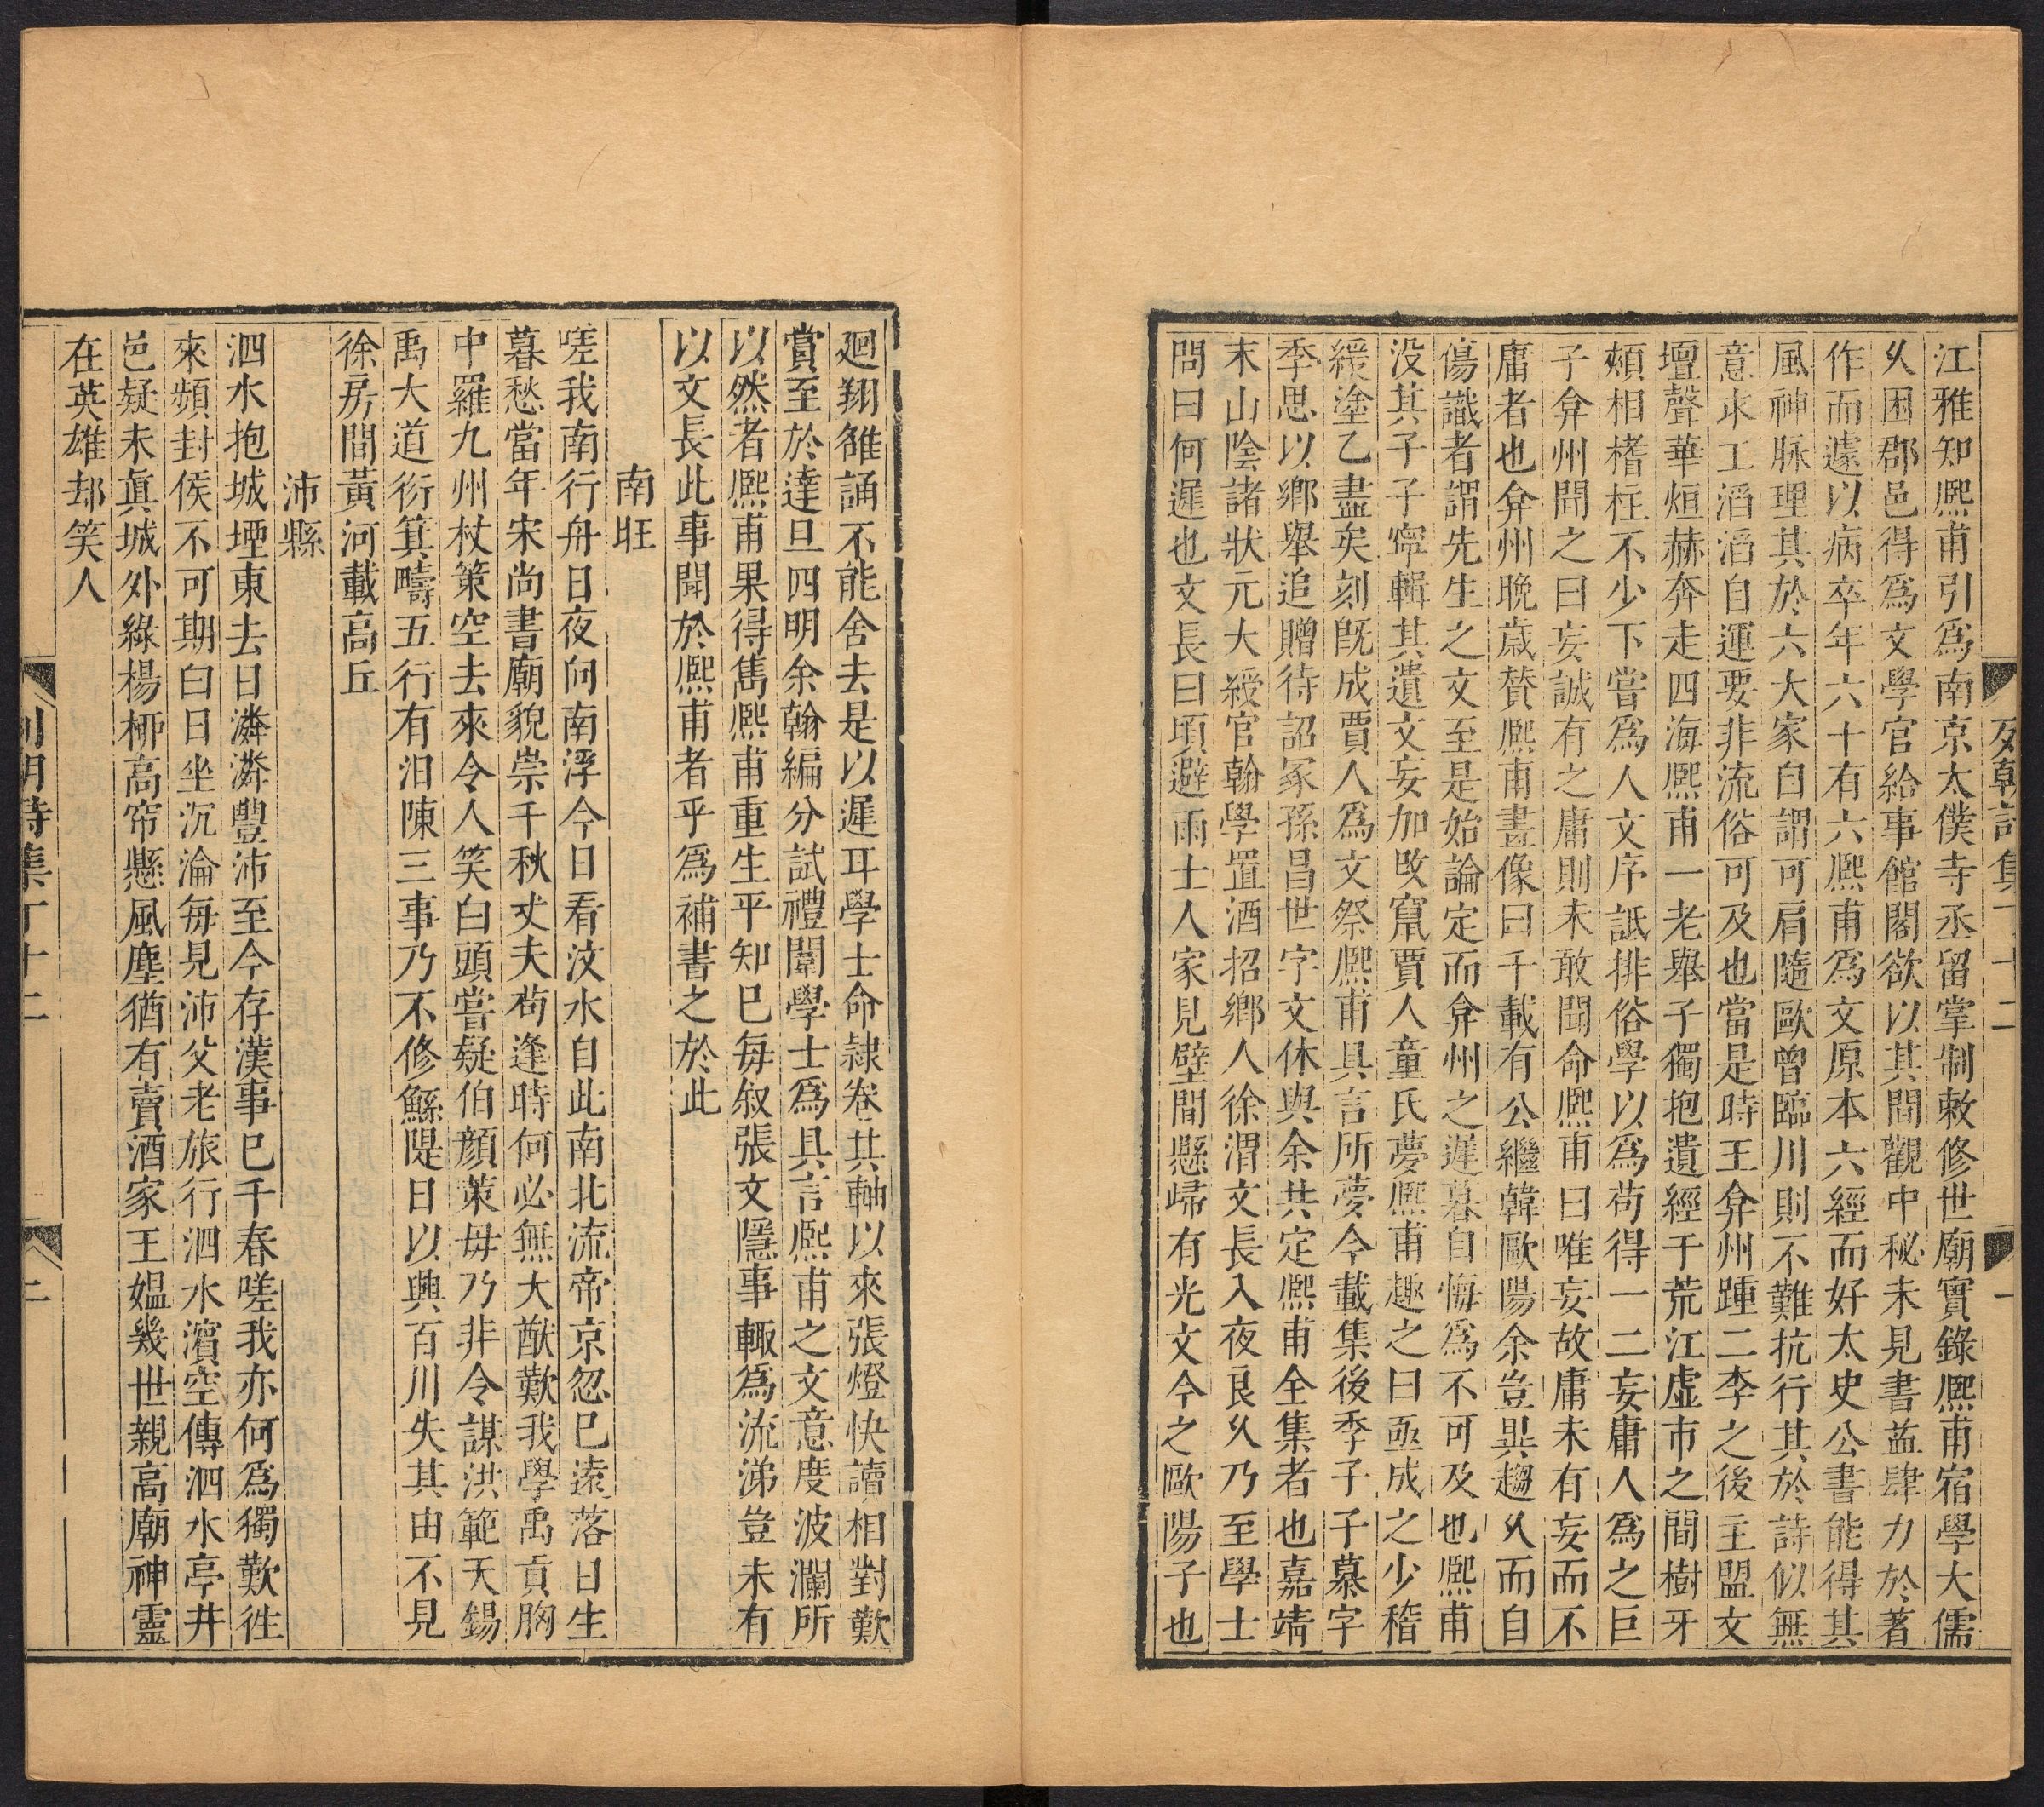 江雅知熈甫引爲南京太僕寺丞留掌制敕修世廟實錄熈甫宿學大儒
乆困郡邑得爲文學官給事館閣欲以其間觀中秘未見書益肆力於著
作而遽以病卒年六十有六熈甫爲文原本六經而好太史公書能得其
風神脉理其於六大家自謂可肩隨歐曾臨川則不難抗行其於詩似無
意求工滔滔自運要非流俗可及也當是時王弇州踵二李之後主盟文
壇聲華烜赫奔走四海熈甫一老舉子獨抱遺經于荒江虛市之間樹牙
頰相榰柱不少下嘗爲人文序詆排俗學以爲苟得一二妄庸人爲之巨
子弇州聞之曰妄誠有之庸則未敢聞命熈甫曰唯妄故庸未有妄而不
庸者也弇州晚歳贊熈甫畫像曰千載有公繼韓歐陽余豈異趨乆而自
傷識者謂先生之文至是始論定而弇州之遲暮自悔爲不可及也熈甫
没其子子寧輯其遺文妄加改竄賈人童氏夢熈甫趣之曰亟成之少稽
緩塗乙盡矣刻旣成賈人爲文祭熈甫具言所夢今載集後季子子慕字
季思以鄉舉追贈待詔冢孫昌世字文休與余共定熈甫全集者也嘉靖
末山陰諸狀元大綬官翰學置酒招鄉人徐渭文長入夜良乆乃至學士
問曰何遲也文長曰頃避雨士人家見壁間懸歸有光文今之歐陽子也
廻翔雒誦不能舍去是以遲耳學士命隷卷其軸以來張燈快讀相對歎
賞至於達旦四明余翰編分試禮闈學士爲具言熈甫之文意度波瀾所
以然者熈甫果得雋熈甫重生平知巳每叙張文隱事輙爲流涕豈未有
以文長此事聞於熈甫者乎爲補書之於此
南旺
嗟我南行舟日夜向南浮今日看汶水自此南北流帝京忽巳遠落日生
暮愁當年宋尚書廟貌崇千秋丈夫苟逢時何必無大猷歎我學禹貢胸
中羅九州杖策空去來令人笑白頭嘗疑伯顔策毋乃非令謀洪範天錫
禹大道衍箕疇五行有汨陳三事乃不修鯀隄日以興百川失其由不見
徐房間黃河載高丘
沛縣
泗水抱城堙東去日潾潾豐沛至今存漢事巳千春嗟我亦何爲獨歎徃
來頻封侯不可期白日坐沉淪每見沛父老旅行泗水濵空傳泗水亭井
邑疑未眞城外綠楊栁高帘懸風塵猶有賣酒家王媪幾世親高廟神靈
在英雄却笑人
列朝詩集丁十二
二
列朝詩集丁十二